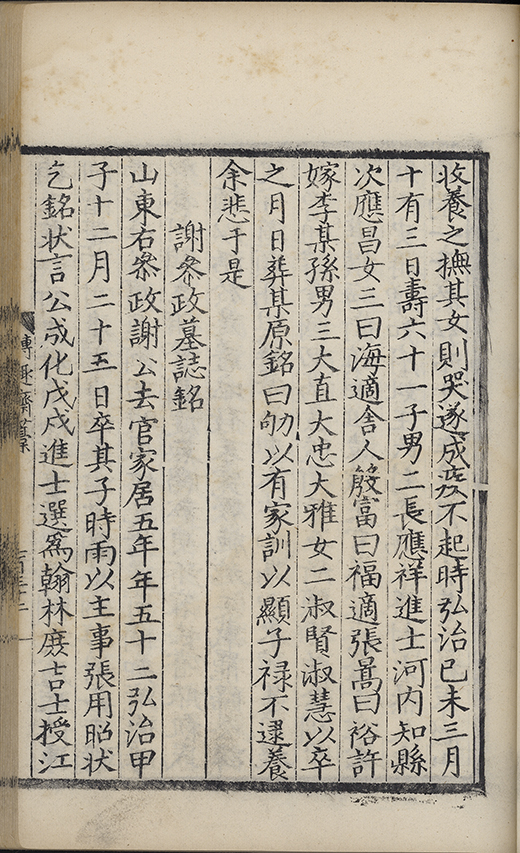 收養之撫其女則哭遂成疾不起時弘治己未三月
十有三日壽六十一子男二長應祥進士河内知縣
次應昌女三曰海適舍人殷富曰福適張暠曰裕許
嫁李某孫男三大直大忠大雅女二淑賢淑慧以卒
之月日葬某原銘曰劬以有家訓以顯子禄不逮養
余悲于是
謝叅政墓誌銘
山東右叅政謝公去官家居五年年五十二弘治甲
子十二月二十五日卒其子時雨以主事張用昭状
乞銘状言公成化戊戌進士選為翰林庶吉士授江